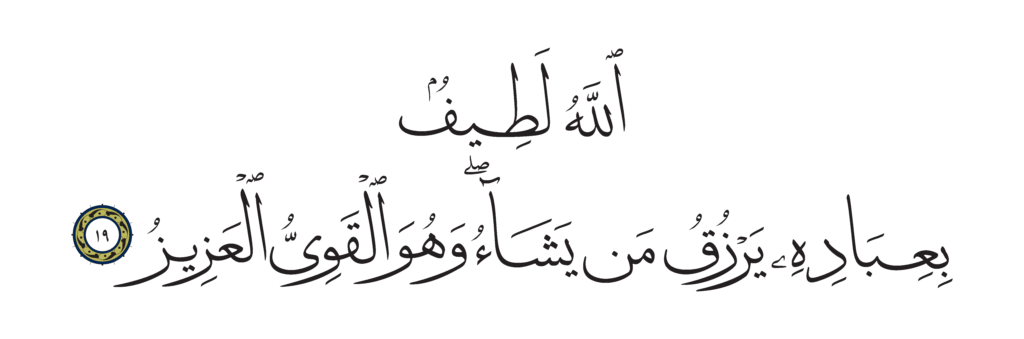 ٱللَّهُ لَطِيفُۢ
بِعِبَادِهِۦ يَرْزُقُ مَن يَشَآءُ ۖ وَهُوَ ٱلْقَوِىُّ ٱلْعَزِيزُ ١٩